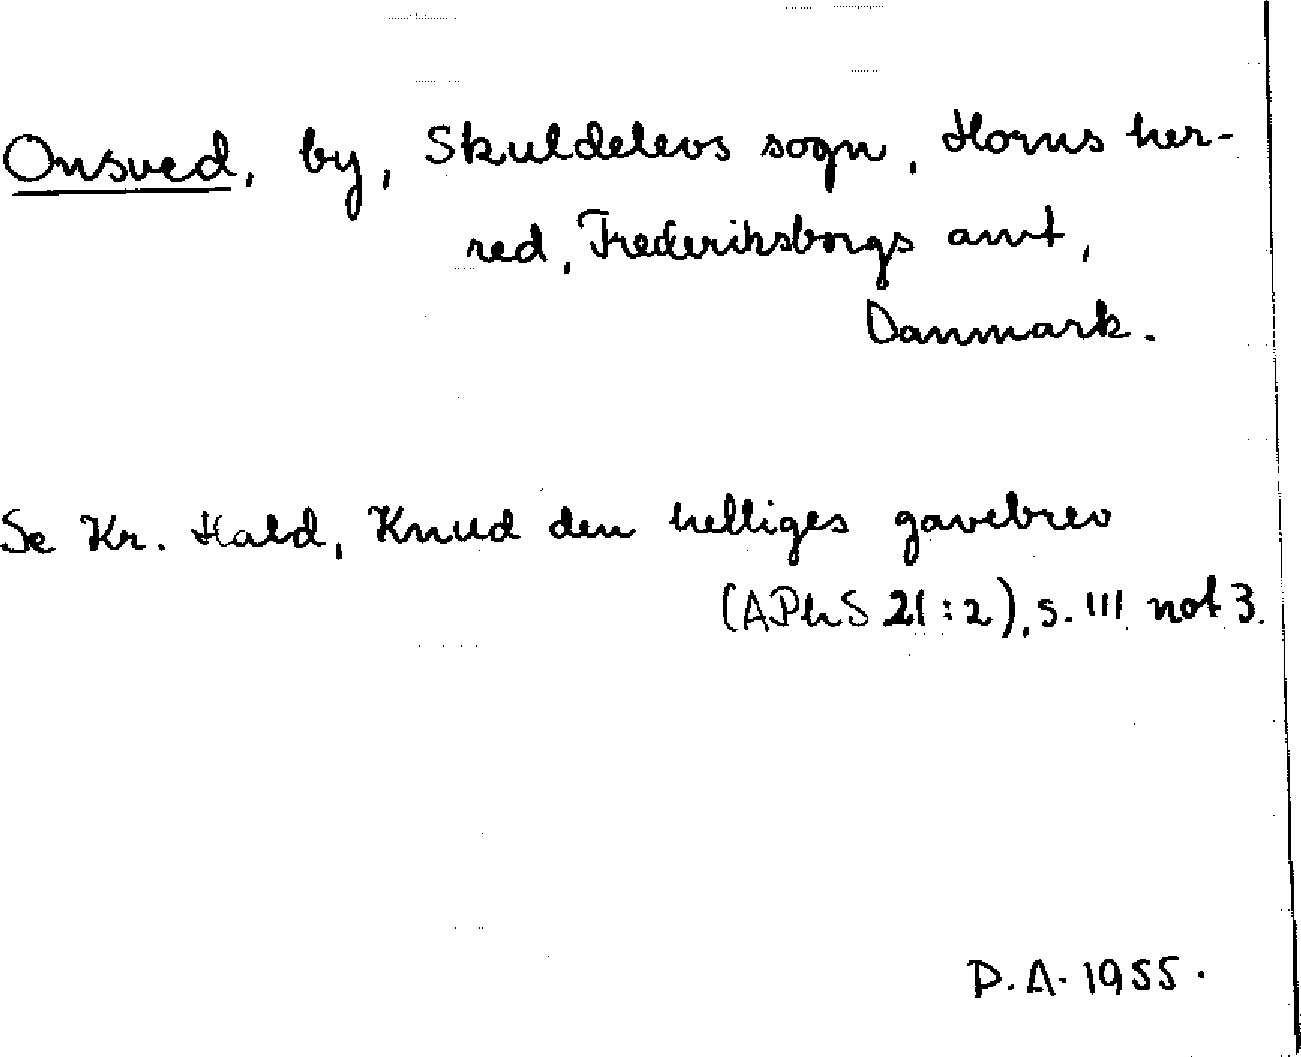 Onsved, by, Skuldelevs sogn, Horns her-
red, Frederiksborgs amt,
Danmark.
Se Kr. Hald, Knud den helliges gavebrev
(APhS 21:2), s. 111 not 3.
P.A. 1955.